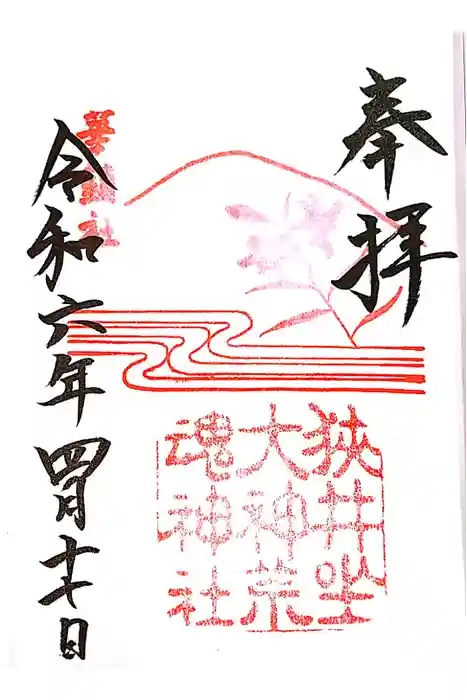 奉拝
狹井坐
大神荒
魂神社
華鎮社
令和六年四月十七日